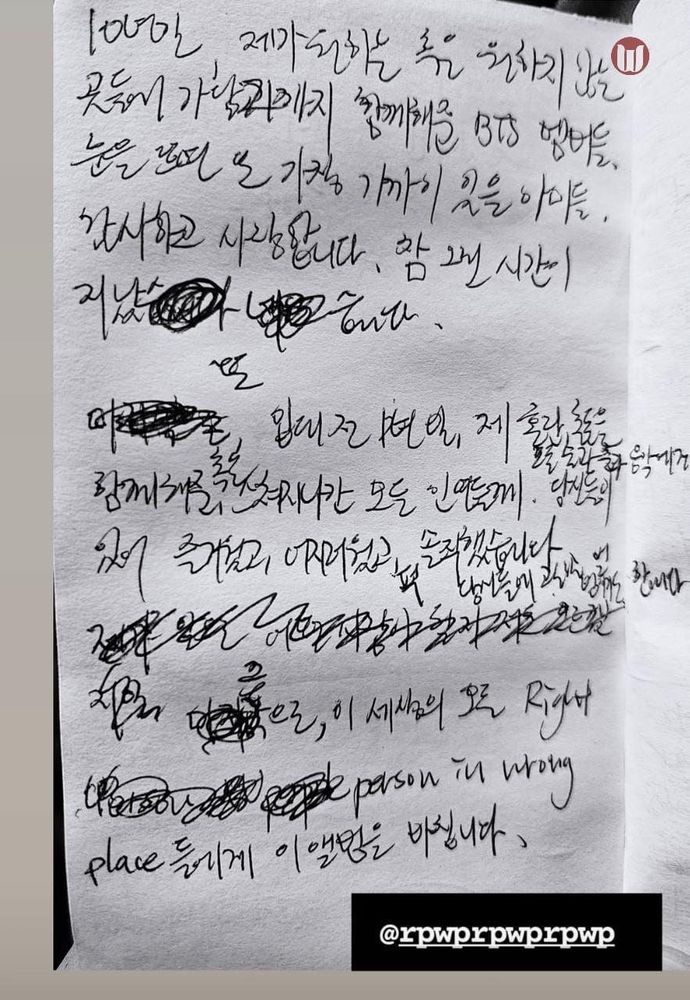 10여년, 제가 원하는 혹은 원하지 않는
곳들에 가 함께해준 BTS 멤버들,
눈을 또 가장 가까이 있을 아미들,
감사하고 사랑합니다. 참 시간이
지났습니다.
또
입대 전 1년 일, 제 혼란 혹은
함께해준, 혹은 스쳐지나간 모든 인연들께. 당신들이
있어 즐거웠고, 어지러웠고, 솔직했습니다
당신들에 합니다
으로, 이 세상의 모든 Right
person in wrong
place 들에게 이 앨범을 바칩니다.
@rpwprpwprpwp